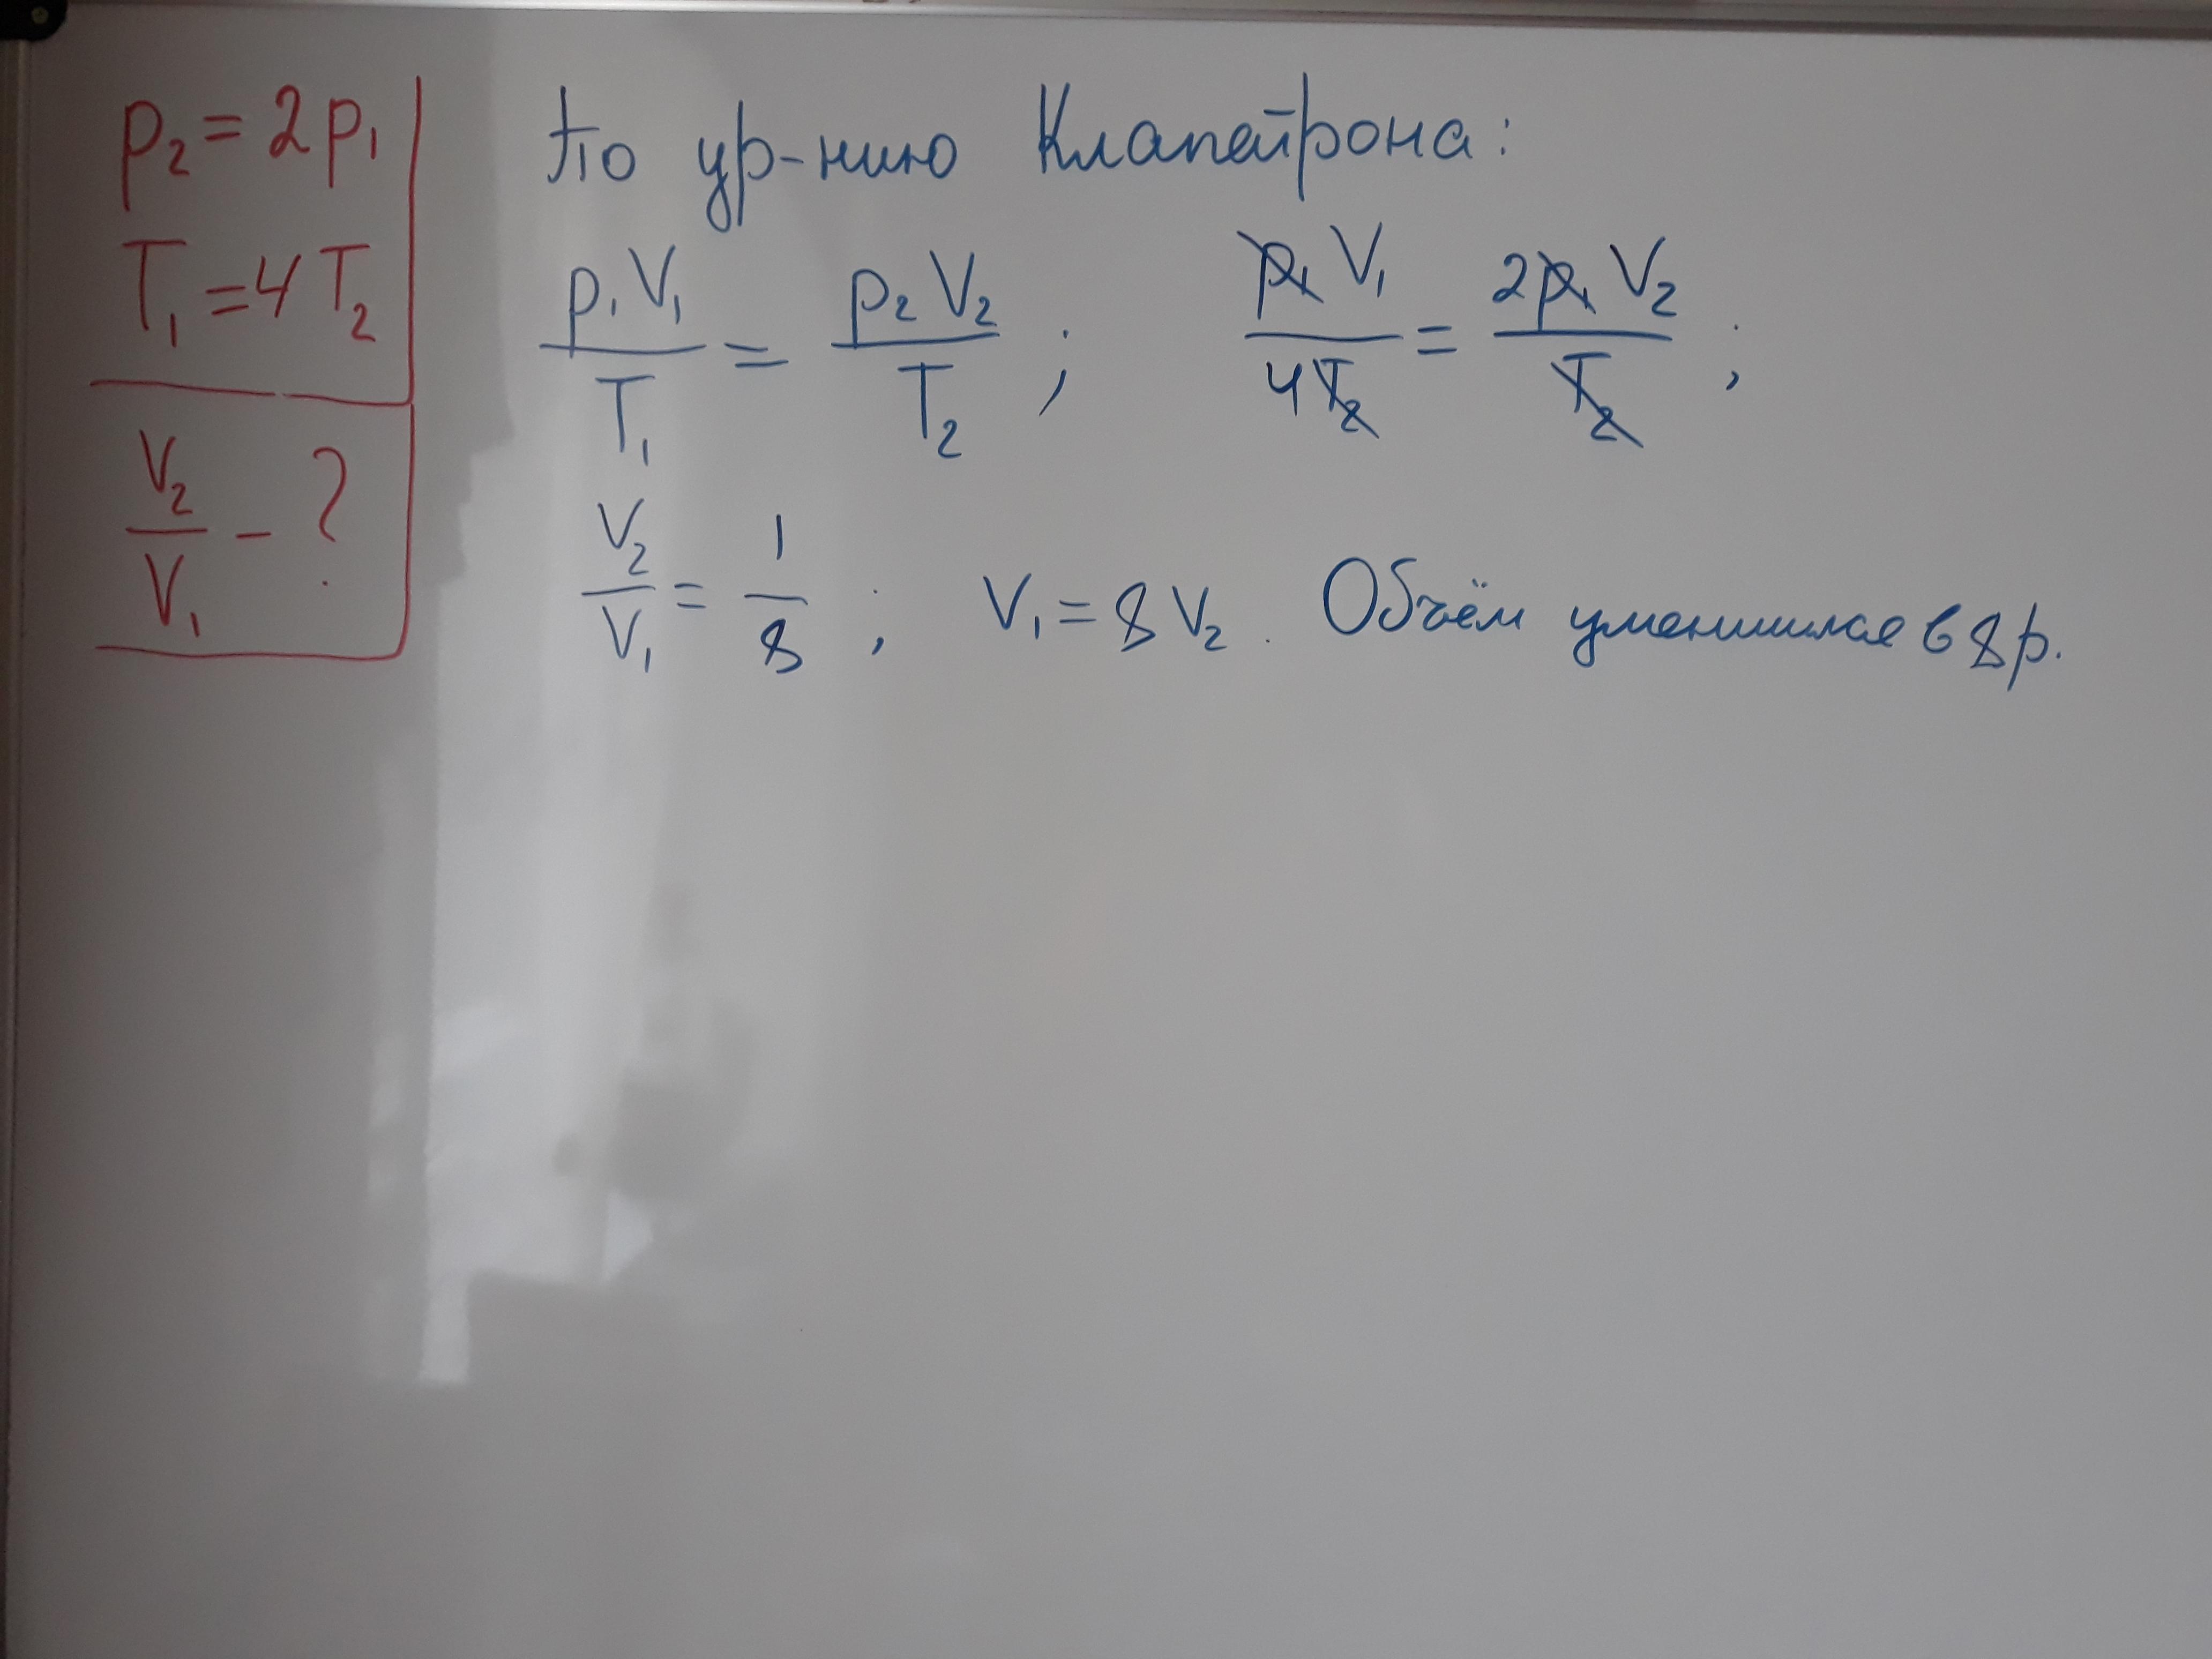 p₂ = 2p₁
T₁ = 4T₂
V₂/V₁ - ?
По ур-нию Клапейрона:
p₁V₁/T₁ = p₂V₂/T₂ ; p₁V₁/4T₂ = 2p₁V₂/T₂ ;
V₂/V₁ = 1/8 ; V₁ = 8V₂. Объём уменшился в 8 р.